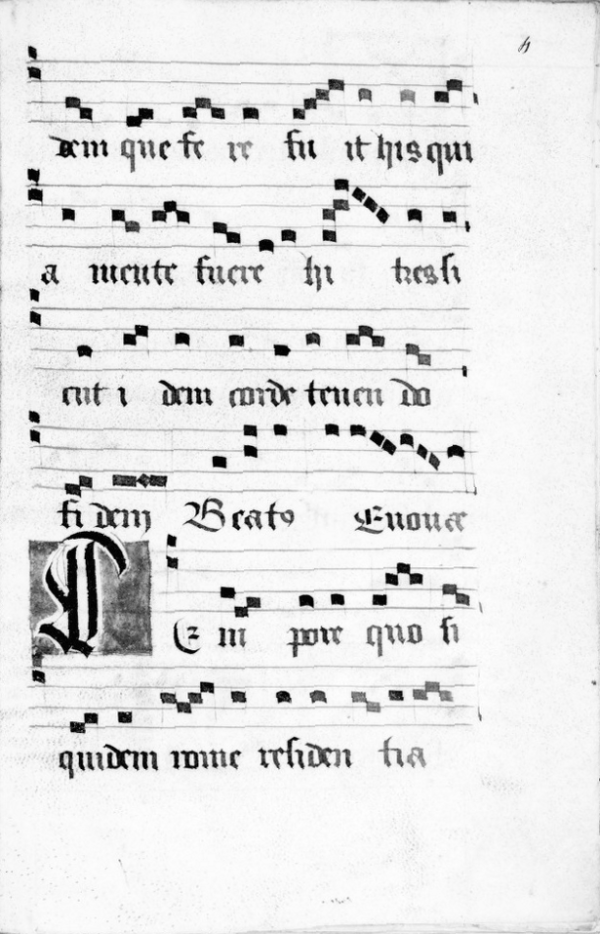 4
dem que fe re fu it his qui
a mente fuere hi tres si
cut i dem corde tenen do
fi dem Beatꝰ Euouae
T E m pore quo si
quidem rome residen tia